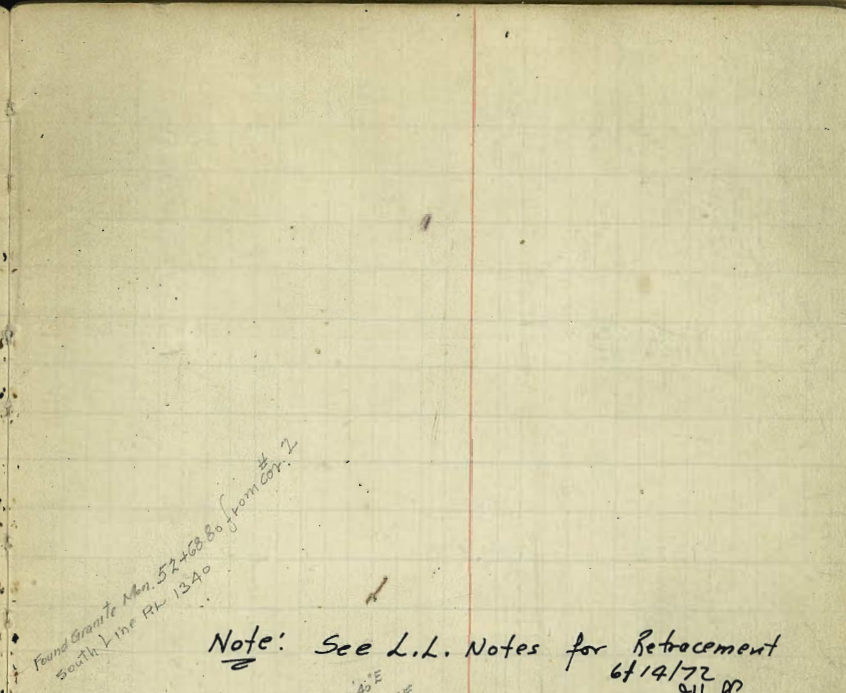 Found Granite Mon. 52+68.80 from Cor. #2
South Line RL 1340
Note: See L.L. Notes for Retracement
6/14/72